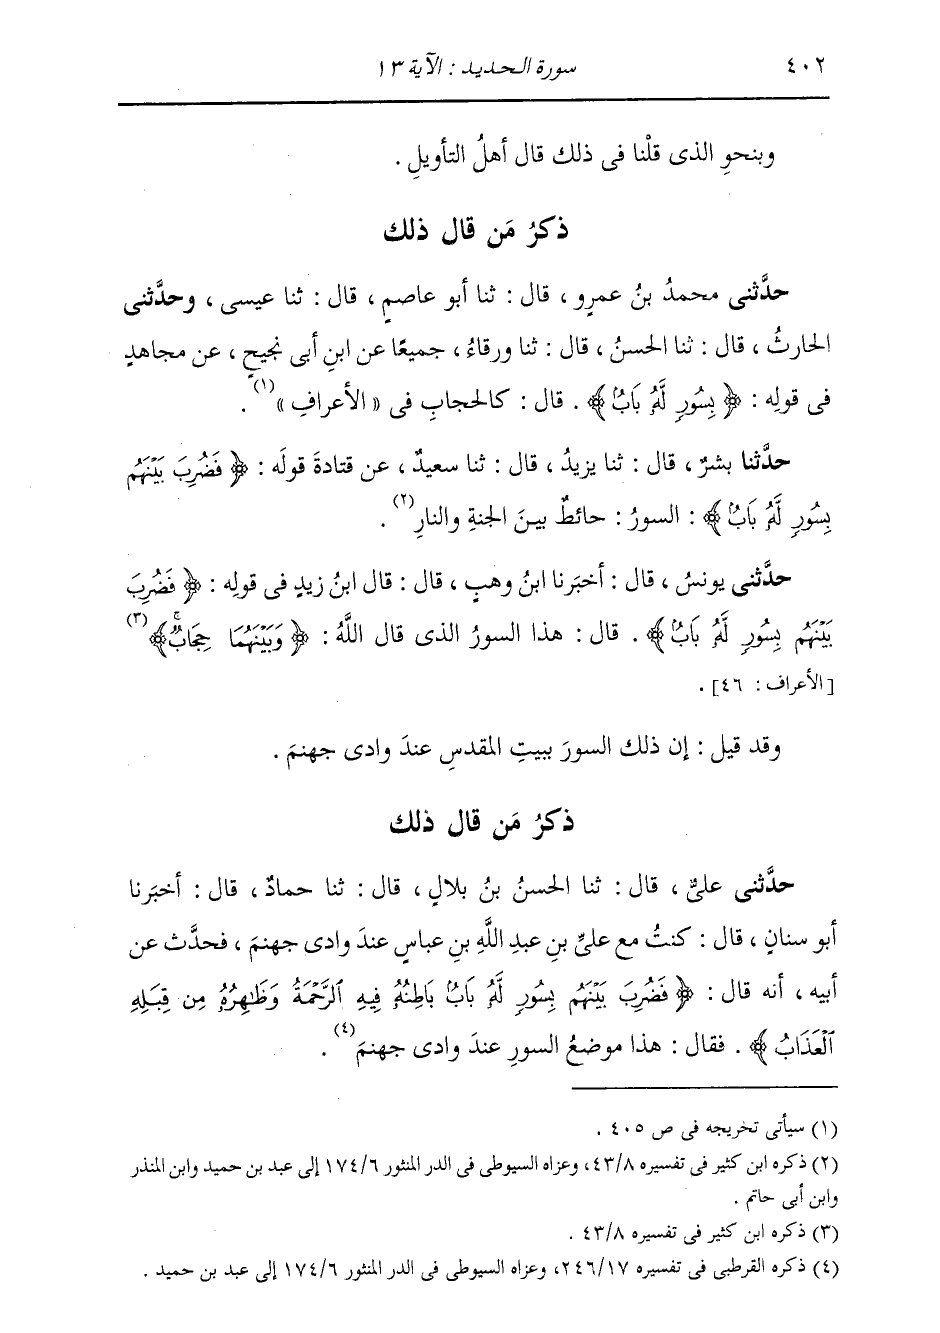 ٤٠٢ سورة الحديد : الآية ١٣
وبنحوِ الذى قلْنا فى ذلك قال أهلُ التأويلِ .
ذكرُ مَن قال ذلك
حدَّثنى محمدُ بنُ عمرٍو ، قال : ثنا أبو عاصمٍ ، قال : ثنا عيسى ، وحدَّثنى
الحارثُ ، قال : ثنا الحسنُ ، قال : ثنا ورقاءُ ، جميعًا عن ابنِ أبى نجيحٍ ، عن مجاهدٍ
فى قولِه : ﴿ بِسُورٍ لَّهُ بَابٌ ﴾ . قال : كالحجابِ فى « الأعرافِ »(١) .
حدَّثنا بشرٌ ، قال : ثنا يزيدُ ، قال : ثنا سعيدٌ ، عن قتادةَ قولَه : ﴿ فَضُرِبَ بَيْنَهُم
بِسُورٍ لَّهُ بَابٌ ﴾ : السورُ : حائطٌ بينَ الجنةِ والنارِ(٢) .
حدَّثنى يونسُ ، قال : أخبَرنا ابنُ وهبٍ ، قال : قال ابنُ زيدٍ فى قولِه : ﴿ فَضُرِبَ
بَيْنَهُم بِسُورٍ لَّهُ بَابٌ ﴾ . قال : هذا السورُ الذى قال اللَّهُ : ﴿ وَبَيْنَهُمَا حِجَابٌ ۚ ﴾(٣)
[الأعراف : ٤٦] .
وقد قيل : إن ذلك السورَ ببيتِ المقدسِ عندَ وادى جهنمَ .
ذكرُ مَن قال ذلك
حدَّثنى علىٌّ ، قال : ثنا الحسنُ بنُ بلالٍ ، قال : ثنا حمادٌ ، قال : أخبَرنا
أبو سنانٍ ، قال : كنتُ مع علىِّ بنِ عبدِ اللَّهِ بنِ عباسٍ عندَ وادى جهنمَ ، فحدَّث عن
أبيه ، أنه قال : ﴿ فَضُرِبَ بَيْنَهُم بِسُورٍ لَّهُ بَابٌ بَاطِنُهُ فِيهِ ٱلرَّحْمَةُ وَظَٰهِرُهُ مِن قِبَلِهِ
ٱلْعَذَابُ ﴾ . فقال : هذا موضعُ السورِ عندَ وادى جهنمَ(٤) .
(١) سيأتى تخريجه فى ص ٤٠٥ .
(٢) ذكره ابن كثير فى تفسيره ٤٣/٨، وعزاه السيوطى فى الدر المنثور ١٧٤/٦ إلى عبد بن حميد وابن المنذر
وابن أبى حاتم .
(٣) ذكره ابن كثير فى تفسيره ٤٣/٨ .
(٤) ذكره القرطبى فى تفسيره ٢٤٦/١٧، وعزاه السيوطى فى الدر المنثور ١٧٤/٦ إلى عبد بن حميد .